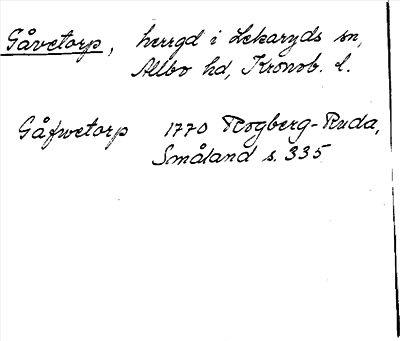 Gåvetorp, herrgd i Lekaryds sn,
Allbo hd, Kronob. l.
Gåfwetorp 1770 Rogberg-Ruda,
Småland s. 335